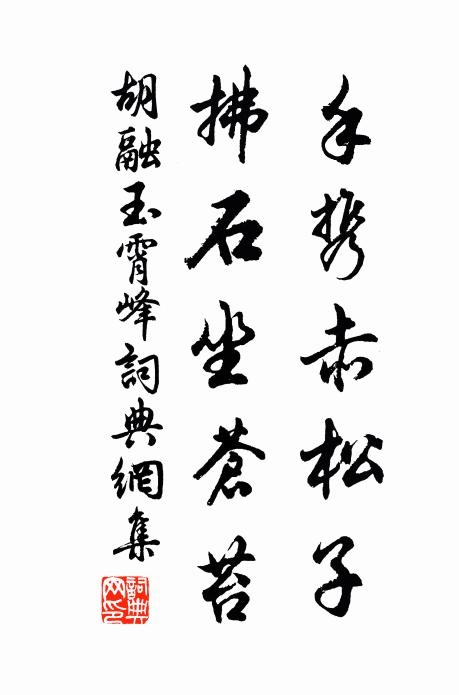 手携赤松子
拂石坐蒼苔
胡融玉霄峰詞典網集
詞典網印